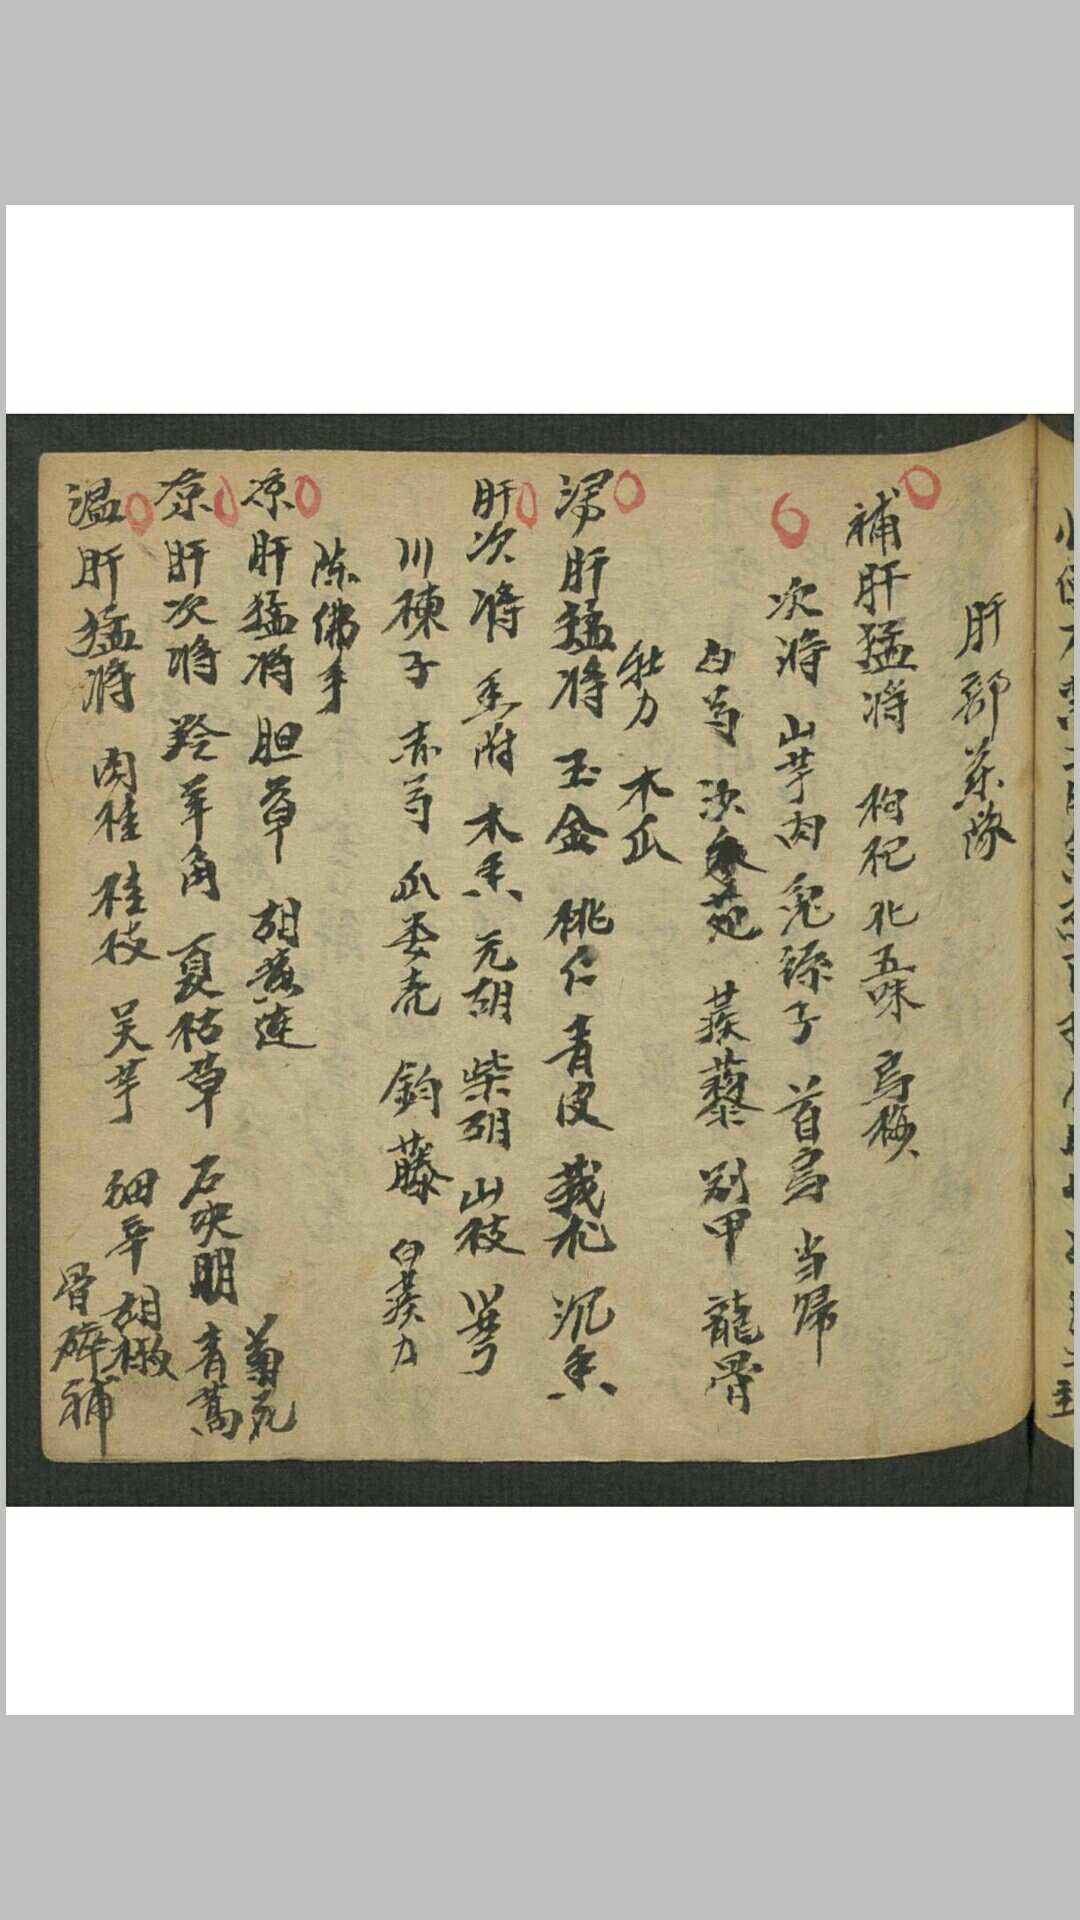 肝部药隊
補肝猛将 枸杞 北五味 烏梅
次将 山芋肉 兎絲子 首烏 当歸
白芍 沙苑 蒺藜 別甲 龍骨
牡力 木瓜
肝猛将 玉金 桃仁 青皮 莪朮 沉香
肝次将 香附 木香 元胡 柴胡 山枝 芎
川楝子 赤芍 瓜委壳 鈎藤 白蒺力
陈佛手
凉肝猛将 胆草 胡黄連
凉肝次将 羚羊角 夏枯草 石决明 青蒿 菊花
温肝猛将 肉桂 桂枝 吴芋 细辛 胡椒 骨碎補